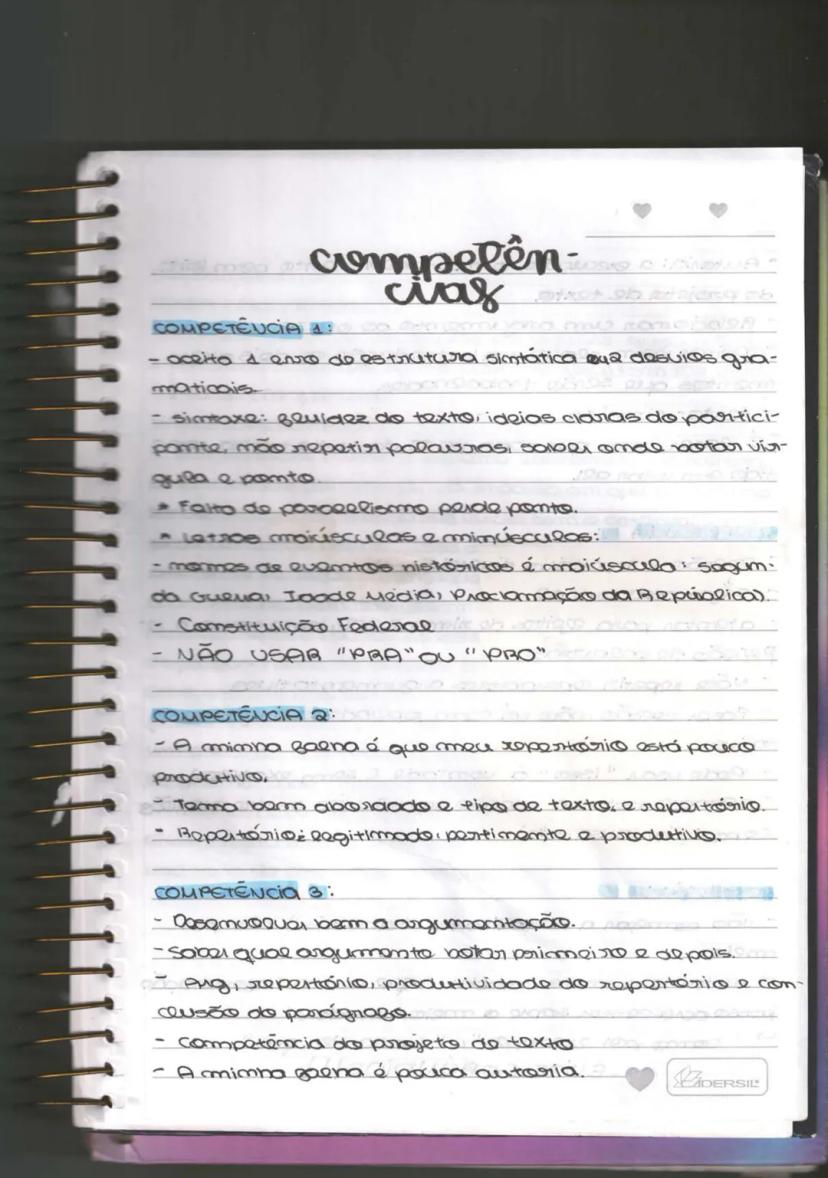 competên-
cias
COMPETÊNCIA 1:
- aceito 1 erro de estrutura sintática e 2 desvios gra-
maticais.
- sintaxe: fluidez do texto, ideias claras do partici-
pante, não repetir palavras, saber onde botar vír-
gula e ponto.
* Falta de paralelismo perde ponto.
* Letras maiúsculas e minúsculas:
- nomes de eventos históricos é maiúscula: Segun-
da Guerra, Idade Média, Proclamação da República).
- Constituição Federal
- NÃO USAR "PRA" OU "PRO"
COMPETÊNCIA 2:
- A minha falha é que meu repertório está pouco
produtivo,
- Tema bem abordado e tipo de texto, e repertório.
- Repertório: legitimado, pertinente e produtivo.
COMPETÊNCIA 3:
- Desenvolver bem a argumentação.
- Saber qual argumento botar primeiro e depois.
- Arg, repertório, produtividade do repertório e con-
clusão do parágrafo.
- Competência do projeto de texto
- A minha falha é pouca autoria.